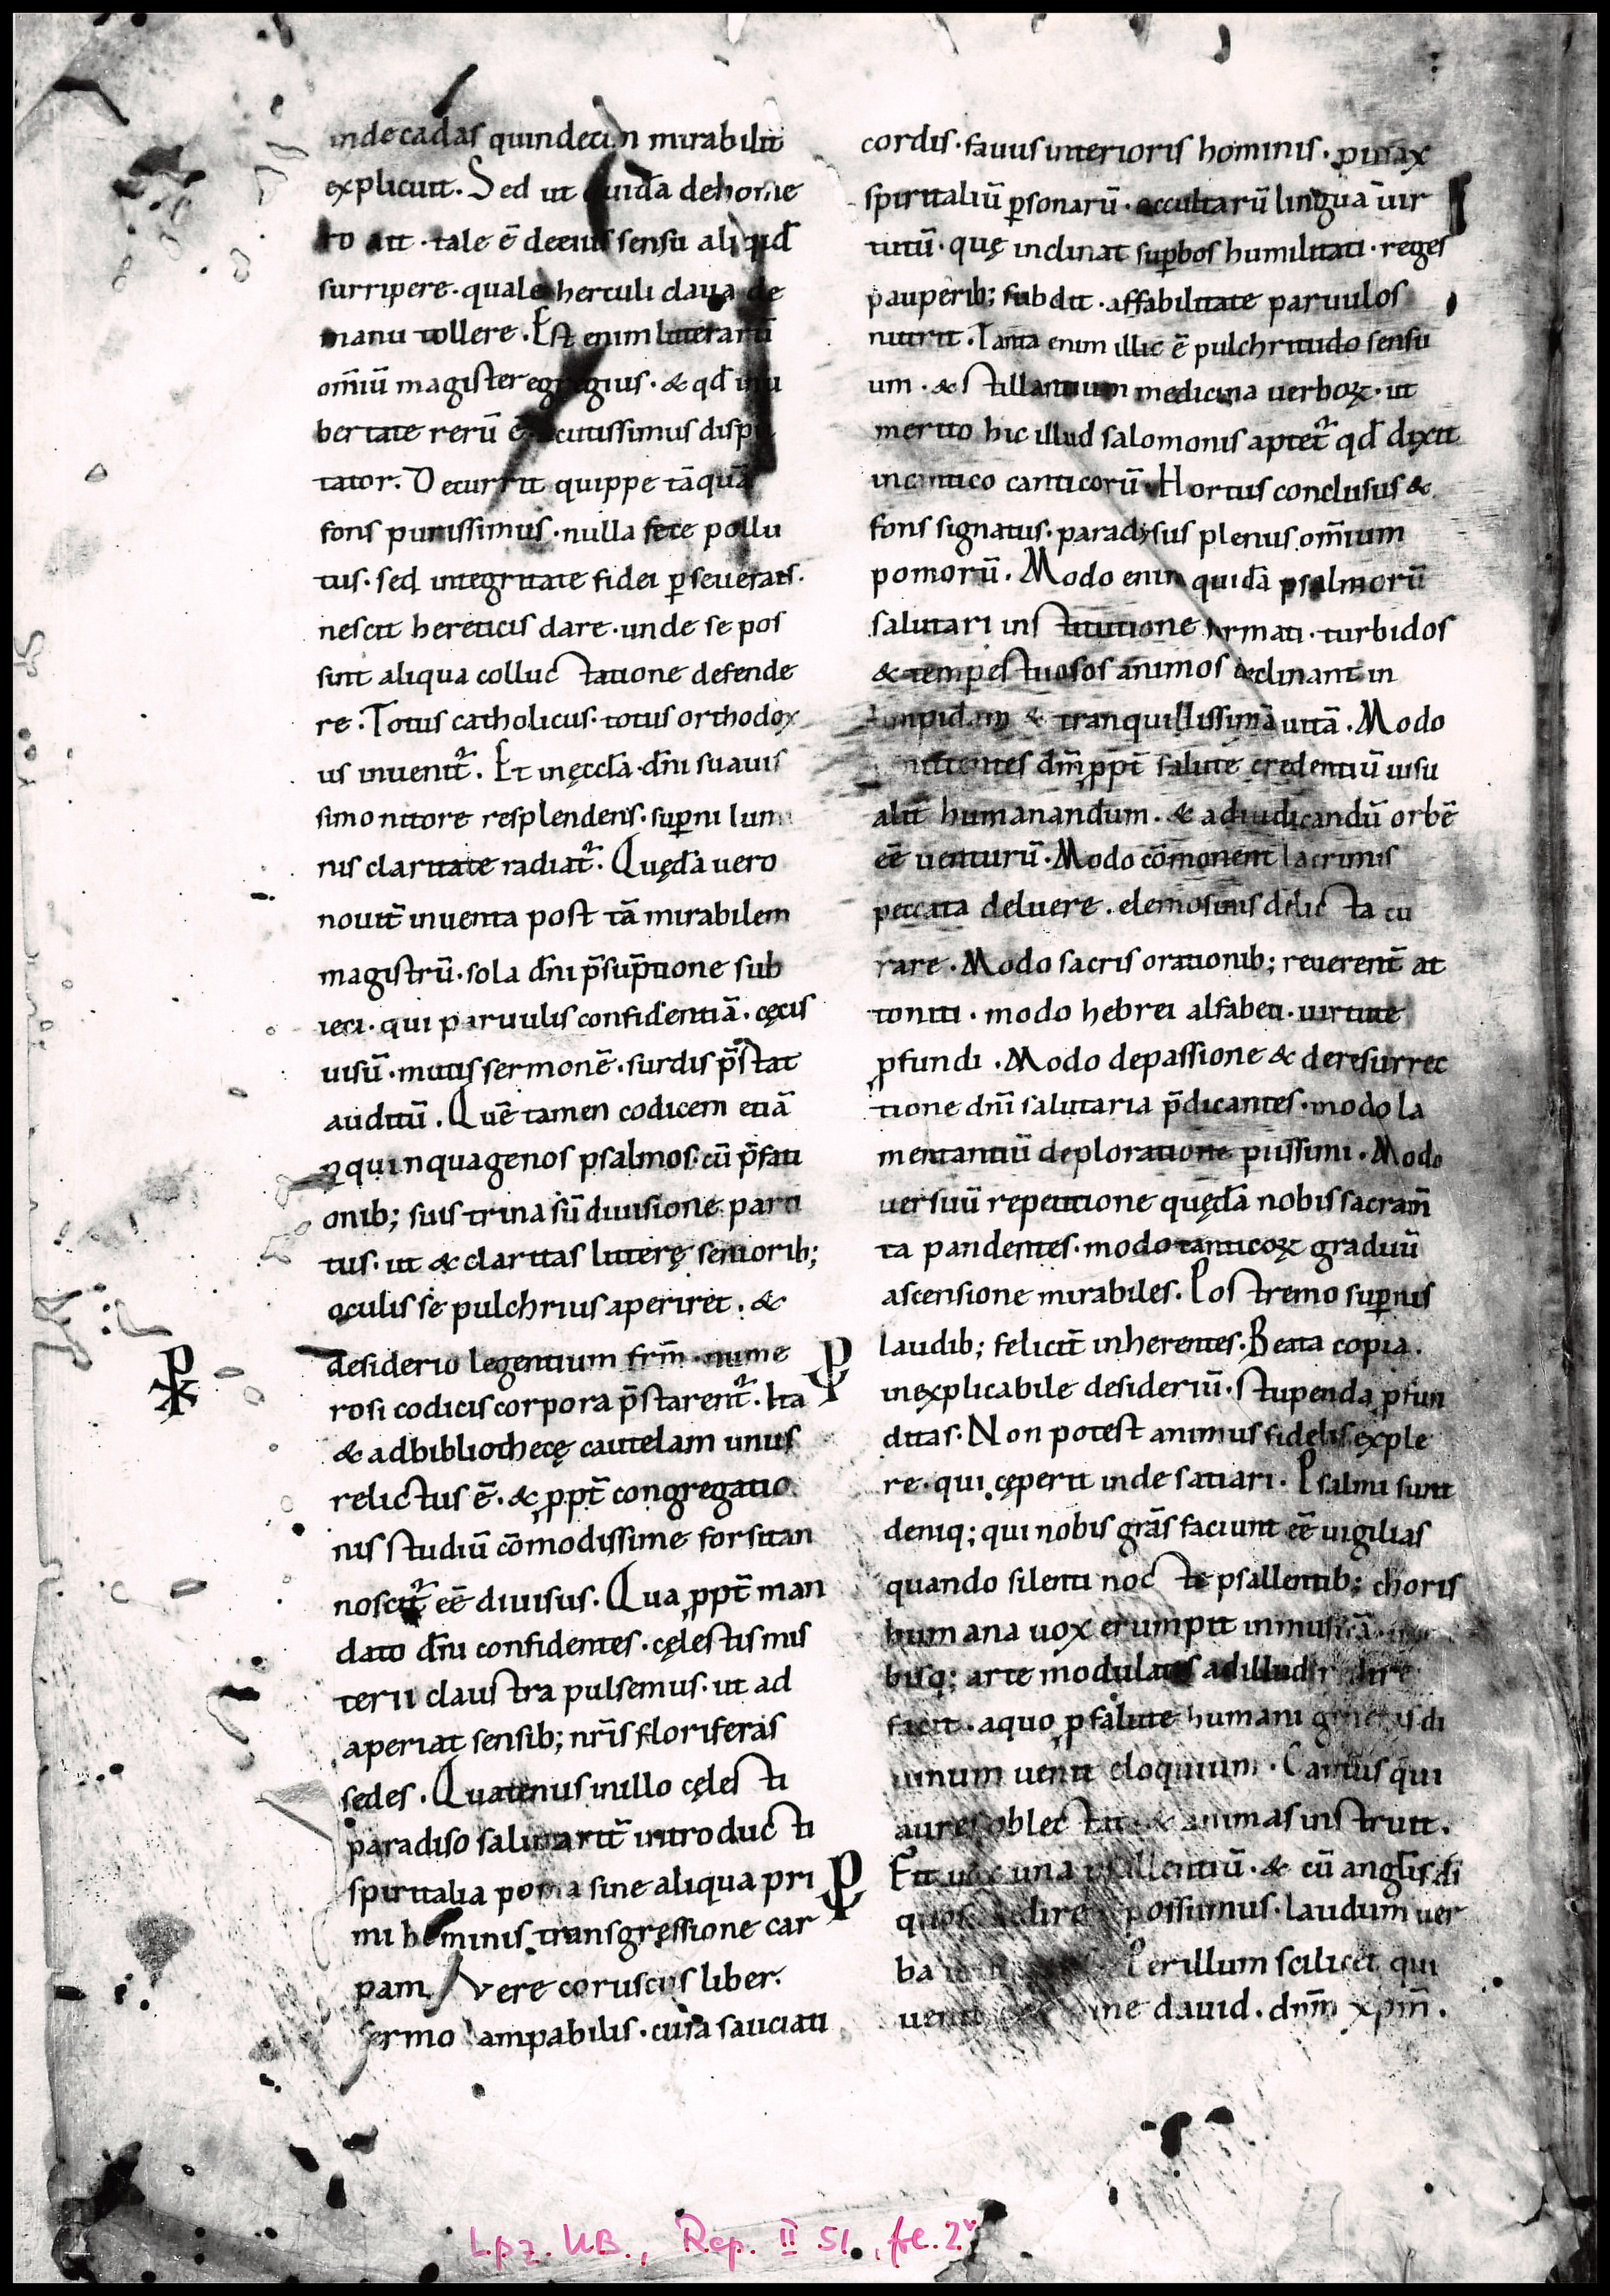 indecadas quindecim mirabilit
explicuit. Sed ut quidā dehome
ro ait · tale ē deeius sensu aliqđ
surripere · quale herculi claua de
manu tollere. Est enim litterarū
om̄iū magister egregius · & qđ in u
bertate rerū ē acutissimus dispu
tator. Decurrit quippe tāquā
fons purissimus · nulla fece pollu
tus · sed integritate fidei ꝑseuerans.
nescit hereticis dare · unde se pos
sint aliqua colluctatione defende
re. Totus catholicus · totus orthodox
us inuenit̄. Et inęccła dn̄i suauis
simo nitore resplendens · suꝑni lumi
nis claritate radiat̄. Quędā uero
nouit̄ inuenta post tā mirabilem
magistrū · sola dn̄i p̄sūptione sub
ieci · qui paruulis confidentiā · cęcis
uisū · mutis sermonē · surdis p̄stat
auditū. Quē tamen codicem etiā
ꝑ quinquagenos psalmos · cū p̄fati
onib; suis trina sū diuisione parti
tus · ut & claritas litterę seniorib;
oculis se pulchrius aperiret · &
desiderio legentium frm̄ · nume
rosi codicis corpora p̄starent̄. Ita
& adbibliothecę cautelam unus
relictus ē · & ꝓpt̄ congregatio
nis studiū cōmodissime forsitan
noscit̄ eē diuisus. Qua ꝓpt̄ man
dato dn̄i confidentes · cęlestis mis
terii claustra pulsemus · ut ad
aperiat sensib; nr̄is floriferas
sedes. Quatenus inillo cęlesti
paradiso salutarit̄ introducti
spiritalia poma sine aliqua pri
mi hominis transgressione car
pam Vere coruscus liber.
sermo lampabilis · cura sauciati
cordis · fauus interioris hominis · pinax
spiritaliū ꝑsonarū · occultarū lingua uir
tutū · quę inclinat suꝑbos humilitati · reges
pauperib; subdit · affabilitate paruulos
nutrit. Tanta enim illic ē pulchritudo sensu
um · & stillantium medicina uerboꝝ · ut
merito hic illud salomonis aptet̄ qđ dixit
incantico canticorū. Hortus conclusus &
fons signatus · paradysus plenus om̄ium
pomorū. Modo enim quidā psalmorū
salutari institutione formati · turbidos
& tempestuosos animos declinant in
limpidam & tranquillissimā uitā. Modo
mittentes dn̄m ꝓpt̄ salute credentiū uisu
alit humanandum · & adiudicandū orbē
eē uenturū. Modo cōmonent lacrimis
peccata deluere · elemosinis delicta cu
rare. Modo sacris orationib; reuerent̄ at
toniti · modo hebrei alfabeti · uirtute
ꝓfundi. Modo depassione & deresurrec
tione dn̄i salutaria p̄dicantes · modo la
mentantiū deploratione piissimi. Modo
uersuū repetitione quędā nobis sacram̄
ta pandentes · modo canticoꝝ graduū
ascensione mirabiles. Postremo suꝑnis
laudib; felicit̄ inherentes. Beata copia.
inexplicabile desideriū · stupenda ꝓfun
ditas. Non potest animus fidelis exple
re · qui cęperit inde satiari. Psalmi sunt
deniq; qui nobis gr̄as faciunt eē uigilias
quando silenti nocte psallentib; choris
humana uox erumpit inmusicā
bisq; arte modulatis adillud redire
facit · aquo ꝓ salute humani generis di
uinum uenit eloquium. Cantus qui
aures oblectat · & animas instruit.
Fit uox una psallentiū · & cū angl̄is di
quos audire possumus · laudum uer
ba Per illum scilicet qui
uenit me dauid · dn̄m xpm̄.
Lpz. UB., Rep. II 51., fol. 2v